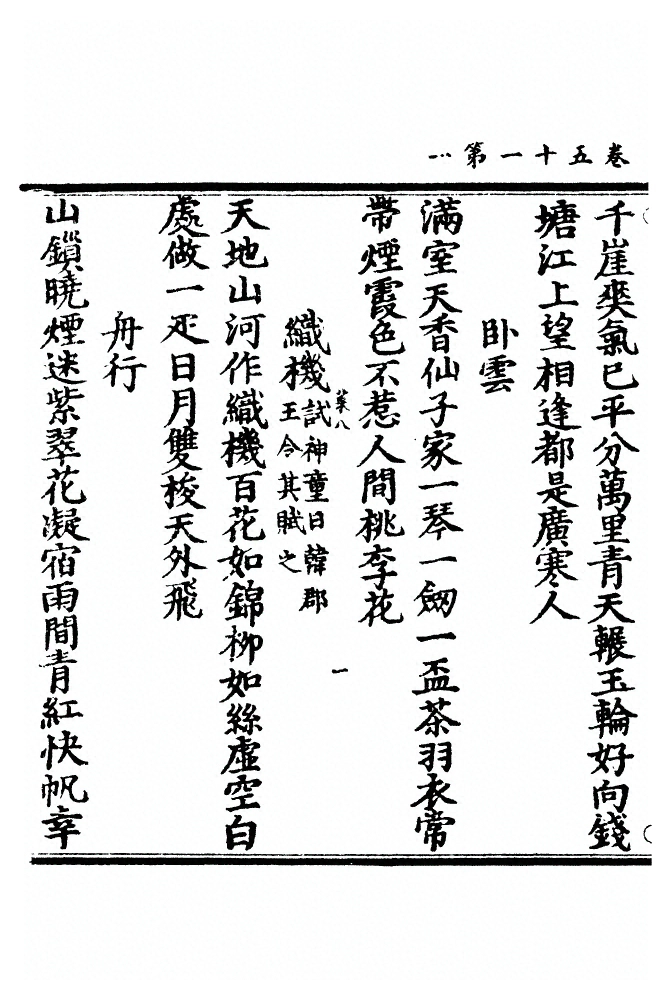 卷五十一第一
千崖爽氣已平分萬里青天輾玉輪好向錢
塘江上望相逢都是廣寒人
卧雲
滿室天香仙子家一琴一劔一盃茶羽衣常
帶煙霞色不惹人間桃李花
葉八
一
織機試神童日韓郡
王令其賦之
天地山河作織機百花如錦柳如絲虛空白
處做一疋日月雙梭天外飛
舟行
山鎖曉煙迷紫翠花凝宿雨間青紅快帆幸